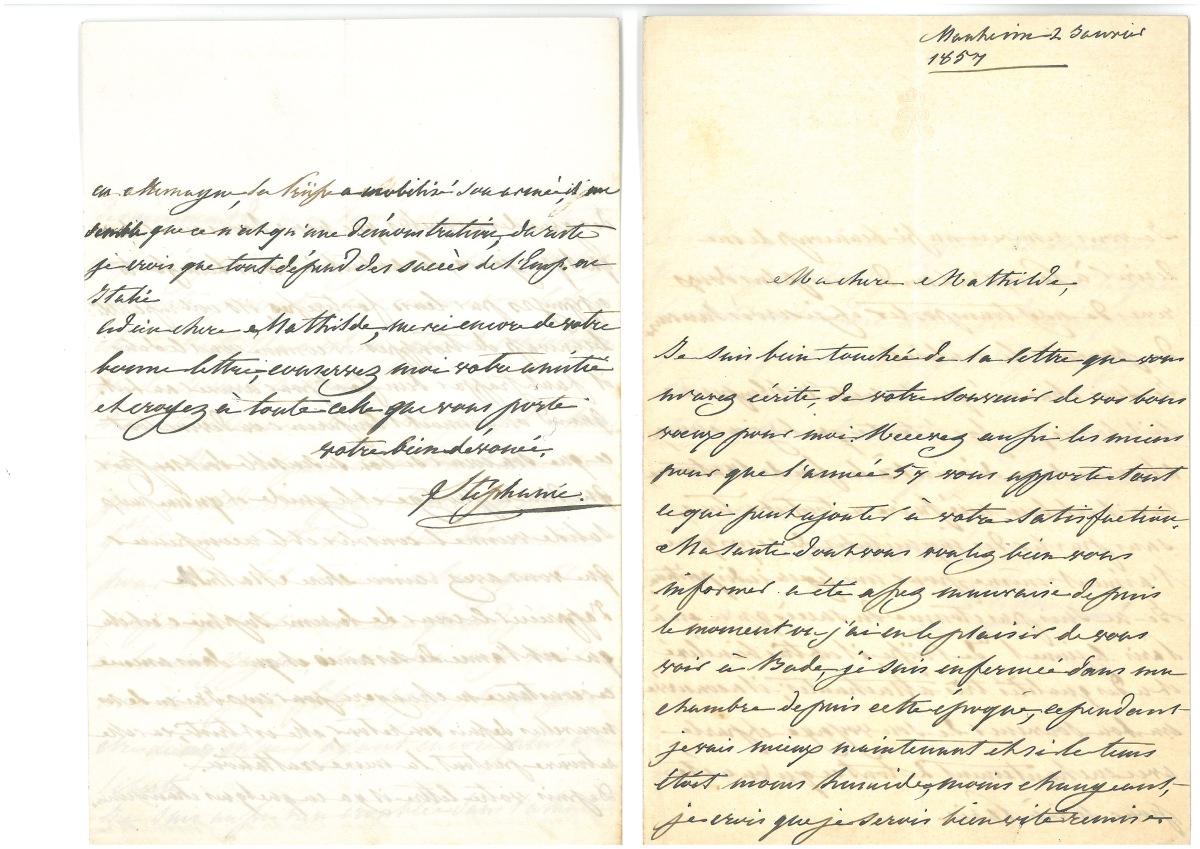 en Allemagne, la Prusse a mobilisé son armée, il me
semble que ce n'est qu'une démonstration, du reste
je crois que tout dépend des succès de l'Emp. en
Italie
adieu chere Mathilde, merci encore de votre
bonne lettre, conservez moi votre amitié
et croyez à toute celle que vous porte
votre bien dévouée,
Stéphanie.
Manheim 2 Janvier
1857
Ma chere Mathilde,
Je suis bien touchée de la lettre que vous
m'avez écrite, de votre souvenir de vos bons
vœux pour moi. Recevez aussi les miens
pour que l'année 57 vous apporte tout
ce qui peut ajouter à votre satisfaction.
Ma santé dont vous voulez bien vous
informer a été assez mauvaise depuis
le moment ou j'ai eu le plaisir de vous
voir à Bade, je suis enfermée dans ma
chambre depuis cette époque, cependant
je vais mieux maintenant et si le tems
était moins humide, moins changeant,
je crois que je serois bien vite remise